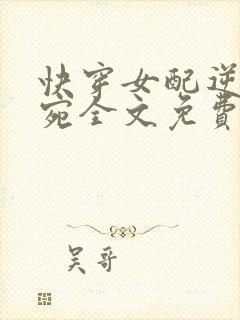 快穿女配逆
宛全文免费
吴哥